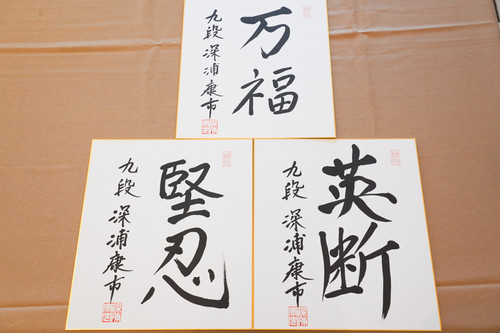 万福
九段 深浦康市
堅忍
九段 深浦康市
英断
九段 深浦康市